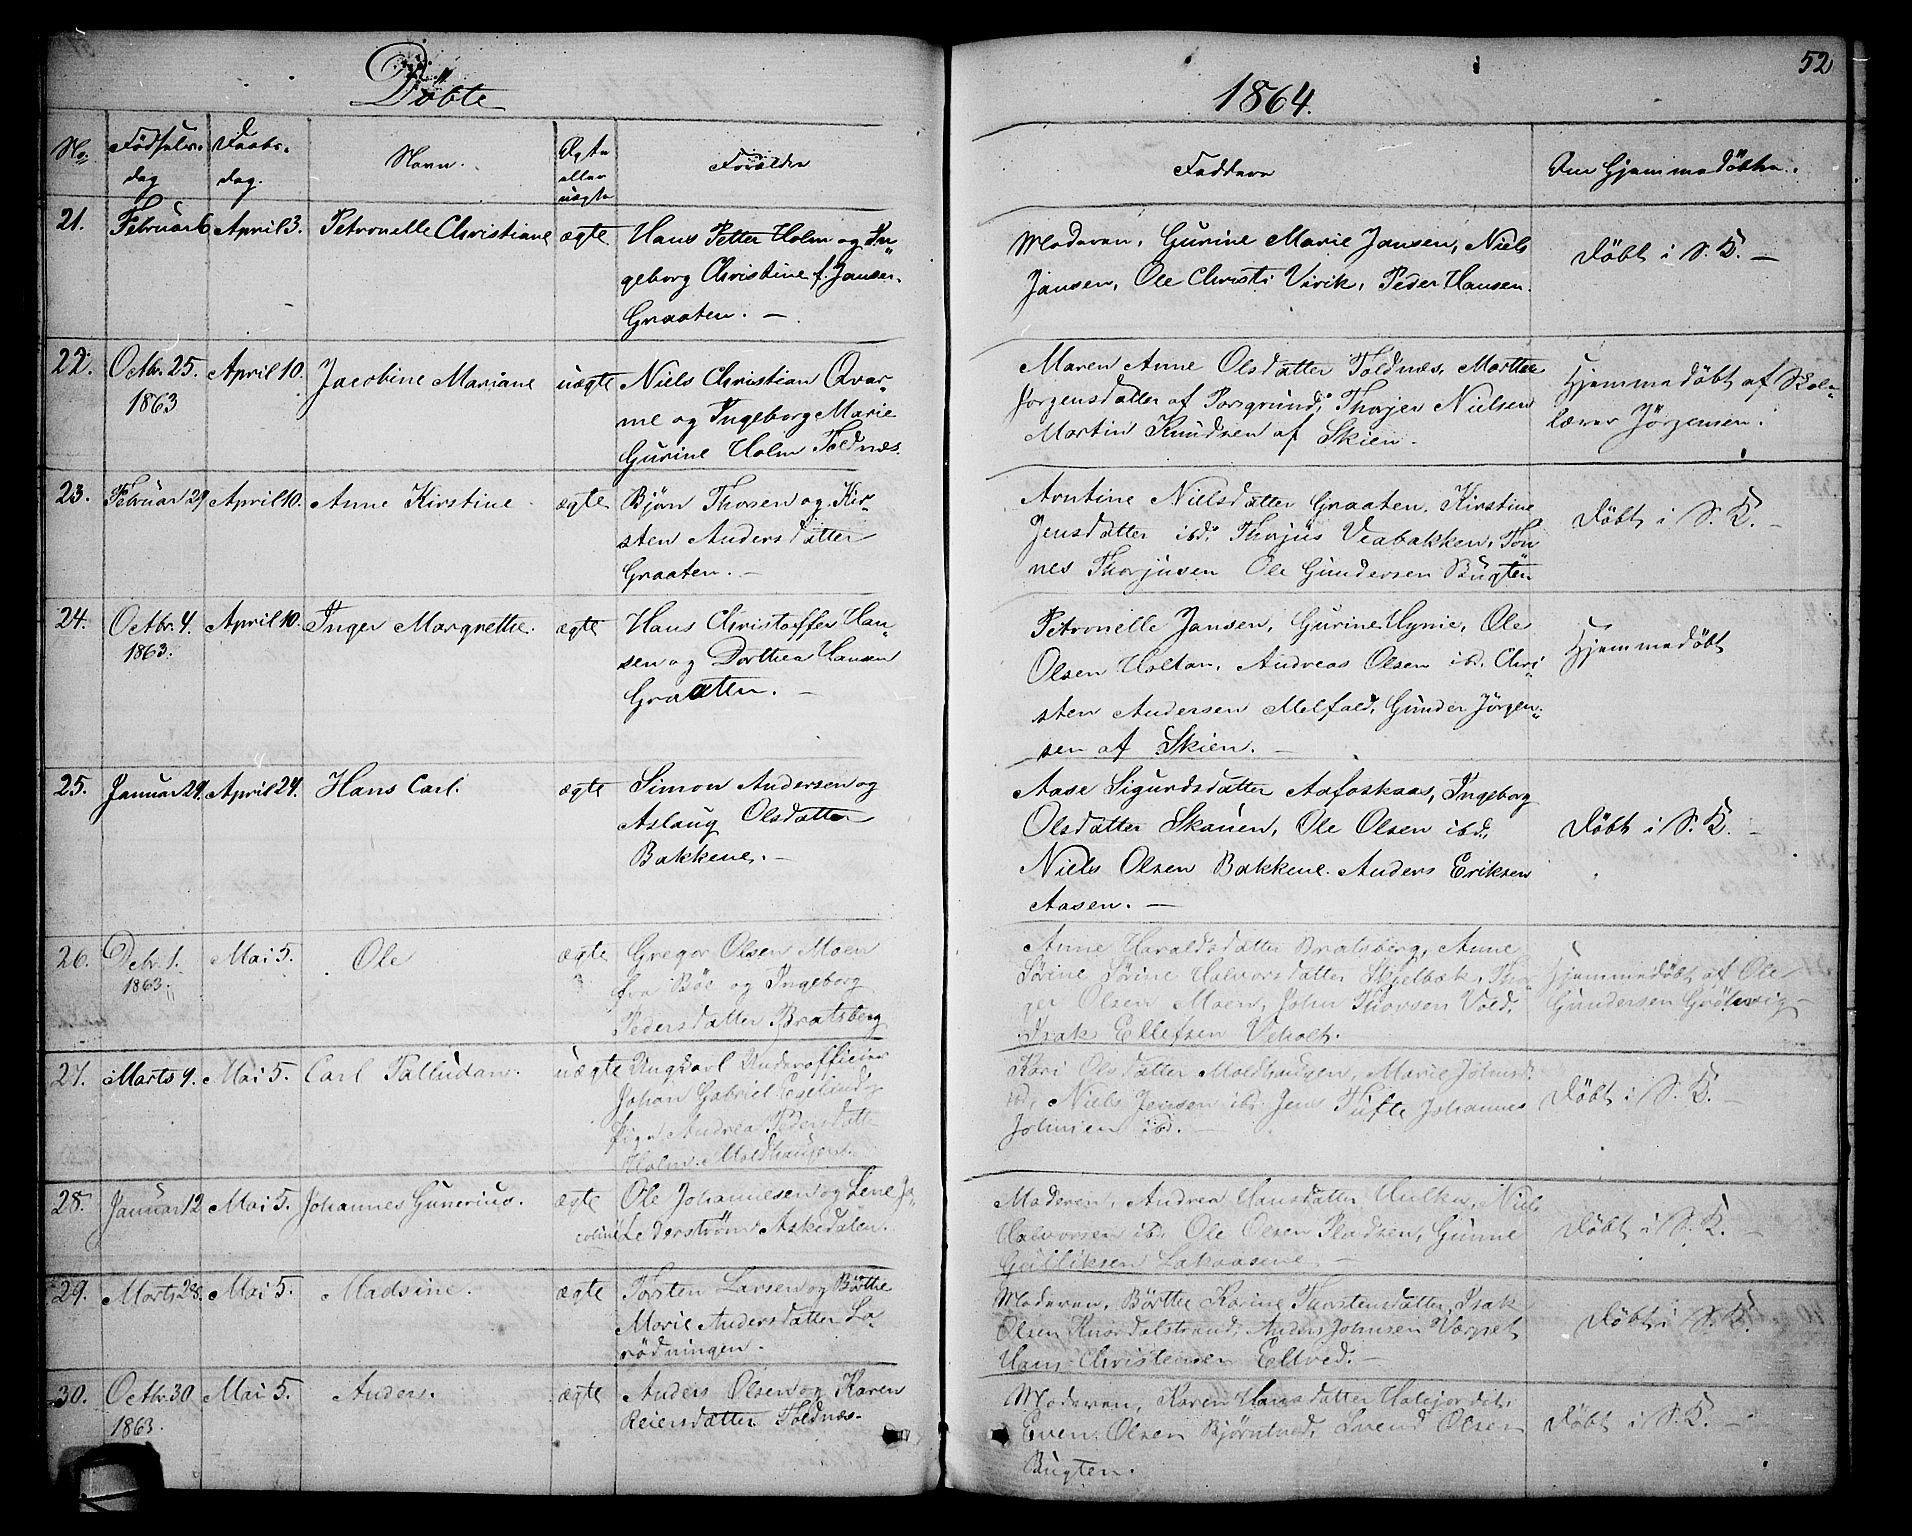 Döbte
1864.
52
No.
Födsels-
dag
Daabs-
dag.
Navn.
Ægte
eller
uægte
Forældre
Faddere
Om Hjemmedöbte.
21.
Februar 6
April 3.
Petronelle Christiane
ægte
Hans Petter Holm og In-
geborg Christine f. Jansen
Graaten. —
Moderen, Gurine Marie Jansen, Niels
Jansen, Ole Christi Virik, Peder Hansen.
Döbt i S. K. —
22.
Octbr. 25.
1863
April 10.
Jacobine Mariane
uægte
Niels Christian Qvar-
me og Ingeborg Marie
Gurine Holm Foldnæs.
Maren Anne Olsdatter Foldnæs, Marthe
Jørgensdatter af Porsgrund, Thorjer Nielsen
Martin Knudsen af Skien.
Hjemmedöbt af Skole-
lærer Jörgensen.
23.
Februar 29
April 10.
Anne Kirstine
ægte
Bjørn Thorsen og Kir-
sten Andersdatter
Graaten. —
Arntine Nielsdatter Graaten, Kirstine
Jensdatter ibd. Thorjus Veabakken, Tön-
nes Thorjusen Ole Gundersen Bugten
Döbt i S. K. —
24.
Octbr. 4.
1863.
April 10.
Inger Margrethe.
ægte
Hans Christoffer Han-
sen og Dorthea Hansen
Graaten. —
Petronelle Jansen, Gurine Hynie, Ole
Olsen Holtan, Andreas Olsen ibd. Chri-
sten Andersen Melfald, Gunder Jörgen-
sen af Skien. —
Hjemmedöbt
25.
Januar 29.
April 24.
Hans Carl.
ægte
Simon Andersen og
Aslaug Olsdatter
Bakkene. —
Aase Sigurdsdatter Aafoskaas, Ingeborg
Olsdatter Skauen, Ole Olsen ibd.
Niels Olsen Bakkene. Anders Eriksen
Aasen. —
Döbt i S. K. —
26.
Debr. 1.
1863.
Mai 5.
Ole
ægte
Gregor Olsen Moen
fra Böe og Ingeborg
Pedersdatter Bratsberg
Anne Haraldsdatter Bratsberg, Anne
Sörine Sörine Halvorsdatter Skjelbæk, Thor-
ger Olsen Moen, John Thorsen Vold,
Isak Ellefsen Veholt.
Hjemmedöbt af Ole
Gundersen Grötsvig —
27.
Marts 9.
Mai 5.
Carl Palludan.
uægte
Ungkarl Underofficier
Johan Gabriel
Pige Andrea Pedersdatter
Holm. Moldhaugen.
Kari Olsdatter Moldhaugen, Marie Johnsd.
ibd, Niels Jensen ibd. Jens Tufte Johannes
Johnsen ibd. —
Döbt i S. K. —
28.
Januar 12
Mai 5.
Johannes Gunerius.
ægte
Ole Johannesen og Lene Ja-
cobine Lederström Askedalen.
Moderen, Andrea Hansdatter Hulka, Niels
Halvorsen ibd. Ole Olsen Pladsen, Gunne
Gulliksen Lakaasene —
Döbt i S. K. —
29.
Marts 28.
Mai 5.
Madsine.
ægte
Torsten Larsen og Börthe
Marie Andersdatter Lo-
rödningen.
Moderen, Börthe Karine Thorstensdatter, Isak
Olsen Knardalstrand, Anders Johnsen Værpet
Hans Christensen Eltved. —
Döbt i S. K.
30.
Octbr. 30
1863.
Mai 5.
Anders.
ægte
Anders Olsen og Karen
Reiersdatter Foldnæs.
Moderen, Karen Hansdatter
Even Olsen Björntved, Svend Olsen
Bugten.
Döbt i S. K. —